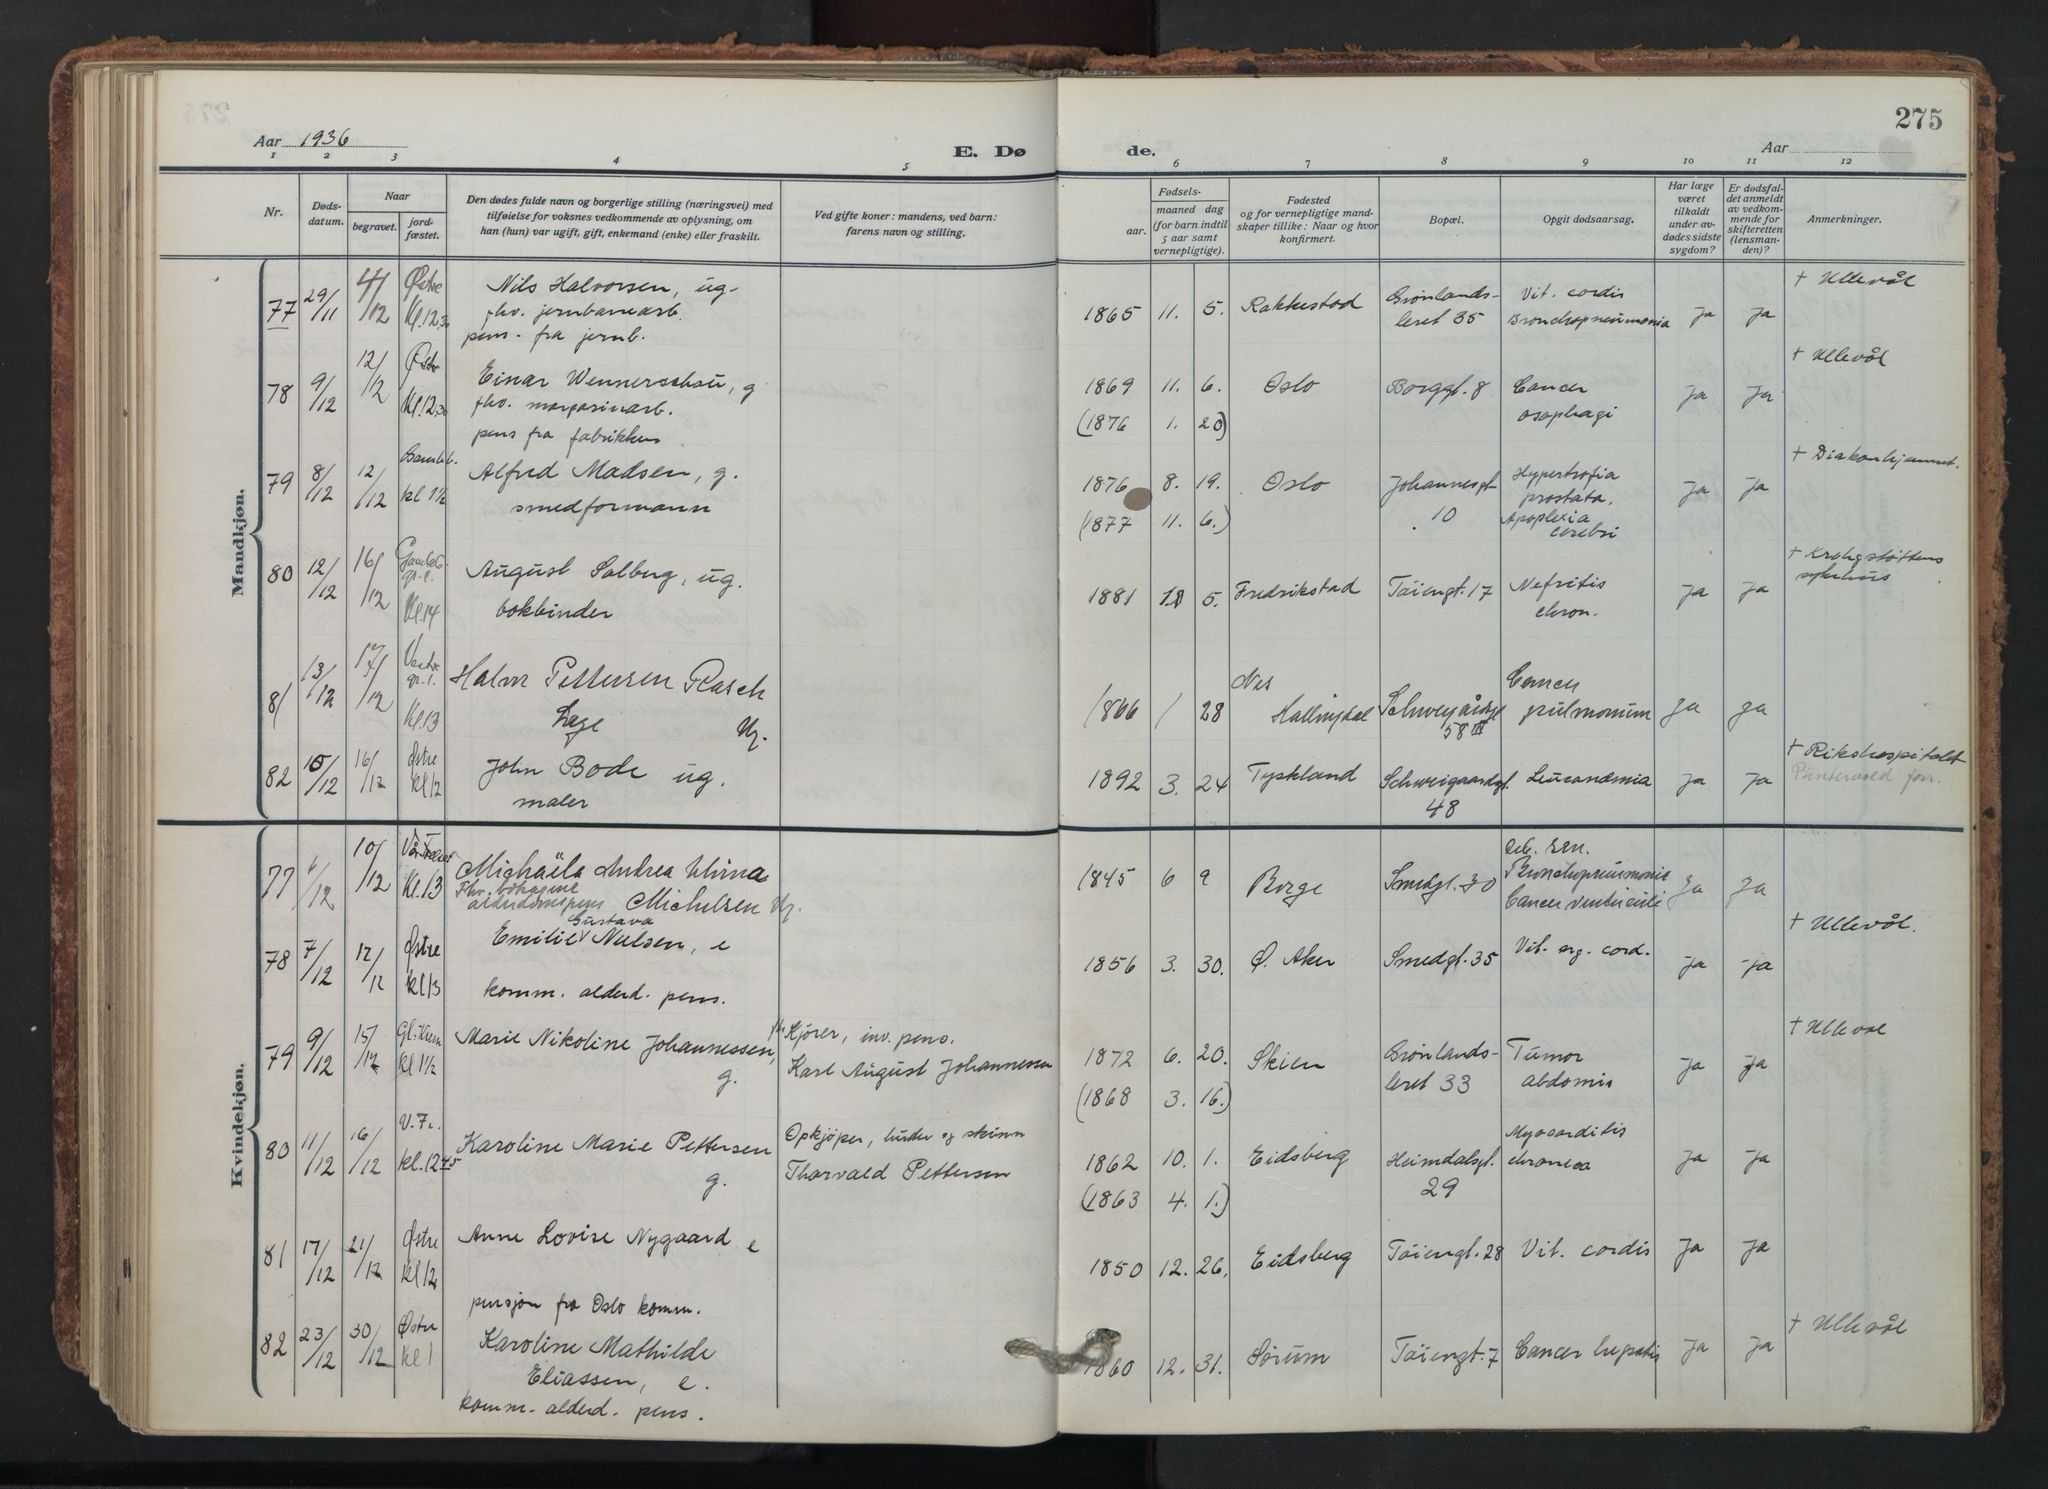 275
Aar 1936
E. Dø
de.
Aar
1 2 3 4 5 6 7 8 9 10 11 12
Nr.
Døds-
datum.
Naar
begravet.
jord-
fæstet.
Den dødes fulde navn og borgerlige stilling (næringsvei) med
tilføielse for voksnes vedkommende av oplysning, om
han (hun) var ugift, gift, enkemand (enke) eller fraskilt.
Ved gifte koner: mandens, ved barn:
farens navn og stilling.
Fødsels-
aar.
maaned
dag
(for barn indtil
5 aar samt
vernepligtige).
Fødested
og for vernepligtige mand-
skaper tillike: Naar og hvor
konfirmert.
Bopæl.
Opgit dødsaarsag.
Har læge
været
tilkaldt
under av-
dødes sidste
sygdom?
Er dødsfal-
det anmeldt
av vedkom-
mende for
skifteretten
(lensman-
den)?
Anmerkninger.
Mandkjøn.
77 29/11 4/12 Østre Kl. 12.30
Nils Halvorsen, ug.
fhv. jernbanearb.
pens. fra jernb.
1865 11. 5. Rakkestad
Grønlands-
leret 35
Vit. cordis
Bronchopneumonia
ja ja + Ullevål
78 9/12 12/12 Østre Kl. 12.30
Einar Wennersshou, g
fhv. margarinarb.
pens fra fabrikken
1869 11. 6. Oslo Borggt. 8
(1876 1. 20)
Cancer
osophagi
ja ja + Ullevål
79 8/12 12/12 kl 1½
Alfred Madsen, g.
smedformann
1876 8. 19. Oslo Johannesgt.
10
(1877 11. 6.)
Hypertrofia
prostata.
Apoplexia
cerebri
ja ja + Diakonhjemmet.
80 12/12 16/12 Kl. 14
August Solberg, ug.
bokbinder
1881 5. Fredrikstad Tøiengt. 17
Nefritis
chron.
ja ja + Krohgstøttens
sykehus
81 13/12 17/12 Vestre gr. l. Kl. 13
Halvor Pettersen Rasch
Læge Ug.
1866 1 28
Nes
Hallingdal
Schweigårdsgt
58 III
Cancer
pulmonum
Ja ja
82 15/12 16/12 Østre kl 12
John Bode ug.
maler
1892 3. 24 Tyskland
Schweigaardsgt.
48
Leucanæmia
ja ja + Rikshospitalet
Kvindekjøn.
77 6/12 10/12 Vår Frelser Kl. 13
Michaëla Andrea Elvina
Fhv.
alderdomspens Michelsen Ug.
1845 6 9 Borge Smedgt. 30
Deb. sen.
Bronchopneumonie
Cancer ventriculi
Ja Ja
78 7/12 12/12 Østre kl 13
Gustava
Emilie Nielsen, e
komm. alderd. pens.
1856 3. 30. Ø. Aker Smedgt. 35
Vit. org. cord.
ja ja + Ullevål.
79 9/12 15/12 Gl. Krem kl 1½
Marie Nikoline Johannessen,
g.
fhv. Kjører, inv. pens.
Karl August Johannessen
1872 6. 20. Skien
Grønlands-
leret 33
(1868 3. 16.)
Tumor
abdomis
ja ja + Ullevål
80 11/12 16/12 V. Fr. kl. 12 45
Karoline Marie Pettersen
g.
Opkjøper, huder og skinn
Thorvald Pettersen
1862 10. 1. Eidsberg
Heimdalsgt.
29
(1863 4. 1.)
Myocarditis
chronica
ja ja
81 17/12 21/12 Østre Kl 12
Anne Lovise Nygaard e
pensjon fra Oslo komm.
1850 12. 26. Eidsberg Tøiengt. 28 Vit. cordis Ja ja
82 23/12 30/12 Østre Kl 1.
Karoline Mathilde
Eliassen, e.
komm. alderd. pens.
1860 12. 31. Sørum Tøiengt. 7 Cancer hepatis ja ja + Ullevål